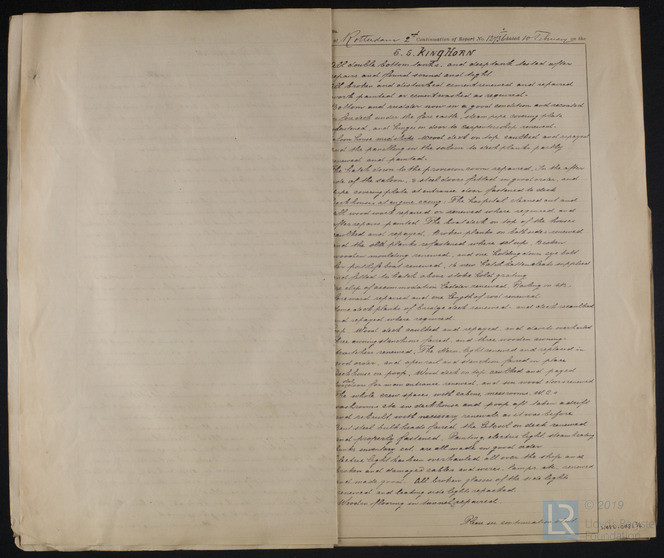 Rotterdam 2d Continuation of Report No. dated 10 February
S.S. KINGHORN
double bottom tanks, and deeptank tested after
repairs and found sound and tight
All broken and disturbed cement renewed and repaired
work painted or cementwashed as required.
Bottom and rudder now in a good condition and recoated
deck under the forecastle, steam pipe covering plate
refastened, and hinges on door to carpentershop renewed.
midships wood deck on top caulked and repayed
and the panelling in the saloon to deck planks partly
renewed and painted.
The hatch down to the provision room repaired. In the after
side of the saloon, 2 steel doors fitted in good order, and
pipe covering plate at entrance door fastened to deck
Deckhouse at engine casing. The hospital cleared out and
all wood work repaired or renewed where required and
after repairs painted. The boat deck on top of the house
caulked and repayed. Broken planks in renewed
and the old planks refastened where set up. Broken
wooden moulding renewed, and one holding down eye bolt
for port life boat renewed, 16 new hatch battens supplied
and fitted to hatch above stoke hold grating
slip of accommodation ladder renewed. Railing on
repaired and one length of rod renewed.
deck planks of bridge deck renewed, and deck recaulked
and repayed where required.
Poop. Wood deck caulked and repayed, and
awning stanchions faired, and three wooden awning
renewed. The Stern light renewed and replaced in
good order, and open rail and stanchion faired in place
Deckhouse on poop. Wood deck on top caulked and payed
for main entrance renewed, and wood door renewed
The whole crew spaces with cabins, messrooms, W.C.s
washrooms etc in deckhouse and poop aft taken adrift
and rebuild with necessary renewals as it was before
Bent steel bulkheads faired, the on deck renewed
and properly fastened. Painting, electric light, steamheating
inventory etc. are all made in good order
Electric light has been overhauled all over the ship and
broken and damaged cables and wires, lamps etc. renewed
and made good. All broken glasses of the side lights
renewed and leading side lights repacked.
Wooden flooring in tunnel repaired.
Please see continuation
© 2019
LR
Lloyd's Register
Foundation